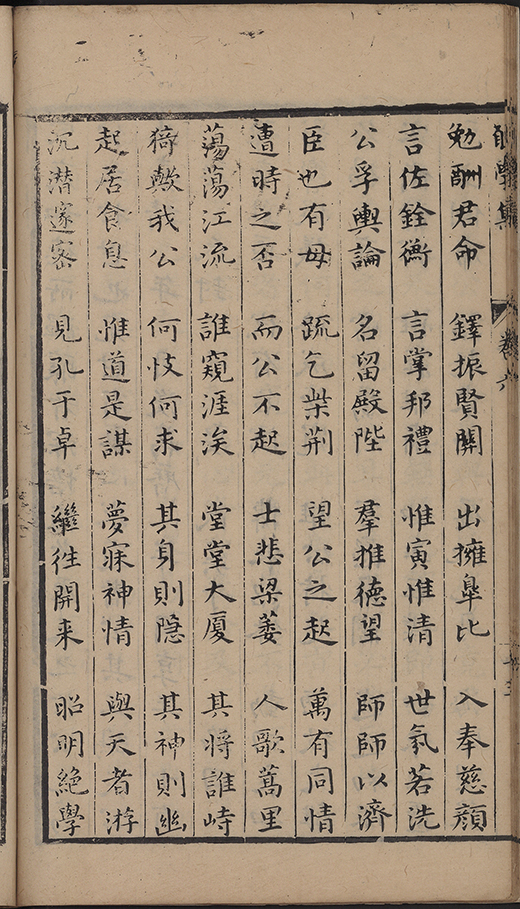 勉酬君命　鐸振賢關　出擁臯比　入奉慈顏
言佐銓衡　言掌邦禮　惟寅惟清　世氛若洗
公孚輿論　名留殿陛　羣推德望　師師以濟
臣也有母　疏乞柴荆　望公之起　萬有同情
遭時之否　而公不起　士悲梁萎　人歌蒿里
蕩蕩江流　誰窺涯涘　堂堂大厦　其將誰峙
猗歟我公　何忮何求　其身則隱　其神則幽
起居食息　惟道是謀　夢寐神情　與天者游
沉潜邃密　見孔于卓　繼徃開来　昭明絶學